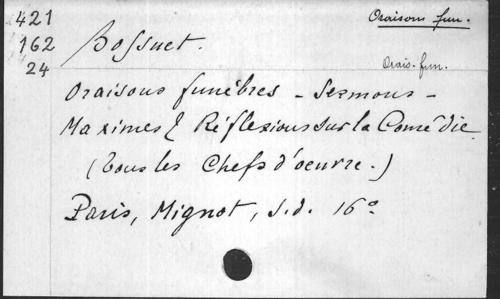 421
162
24
Oraisons fun.
Bossuet.
Orais. fun.
Oraisons funèbres - Sermons -
Maximes & Réflexions sur la Comédie
(Tous les Chefs d'oeuvre.)
Paris, Mignot, s.d. 16°